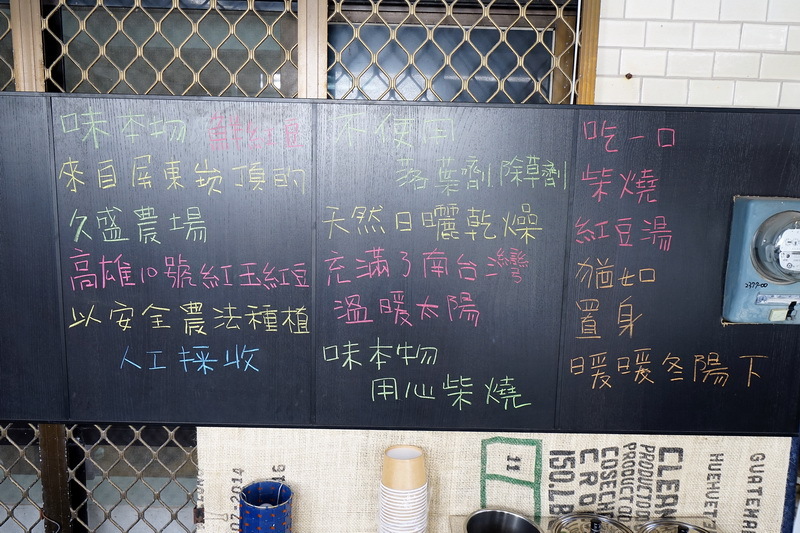 味本物 鮮紅豆
來自屏東崁頂的
久盛農場
高雄10號紅玉紅豆
以安全農法種植
人工採收
不使用
落葉劑除草劑
天然日曬乾燥
充滿了南台灣
溫暖太陽
味本物
用心柴燒
吃一口
柴燒
紅豆湯
猶如
置身
暖暖冬陽下
2377-00
11
2014
16
ISO
CROP
COSECHA
PRODUCTO
PRODUCT
CLEAN
HUEHUET
GUATEMA